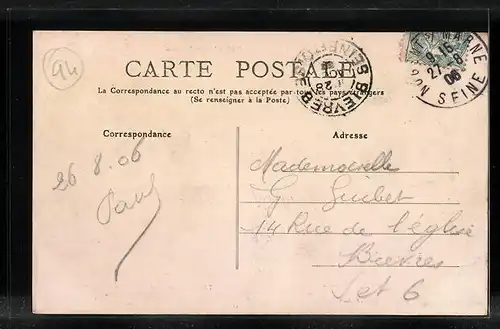 94
CARTE POSTALE
La Correspondance au recto n'est pas acceptée par tous les pays étrangers
(Se renseigner à la Poste)
Correspondance
Adresse
26.8.06
Mademoiselle
G. Guibet
14 Rue de l'église
Bièvres
S et O
BIEVRES
MARNE
9-15
27-8
06
SEINE